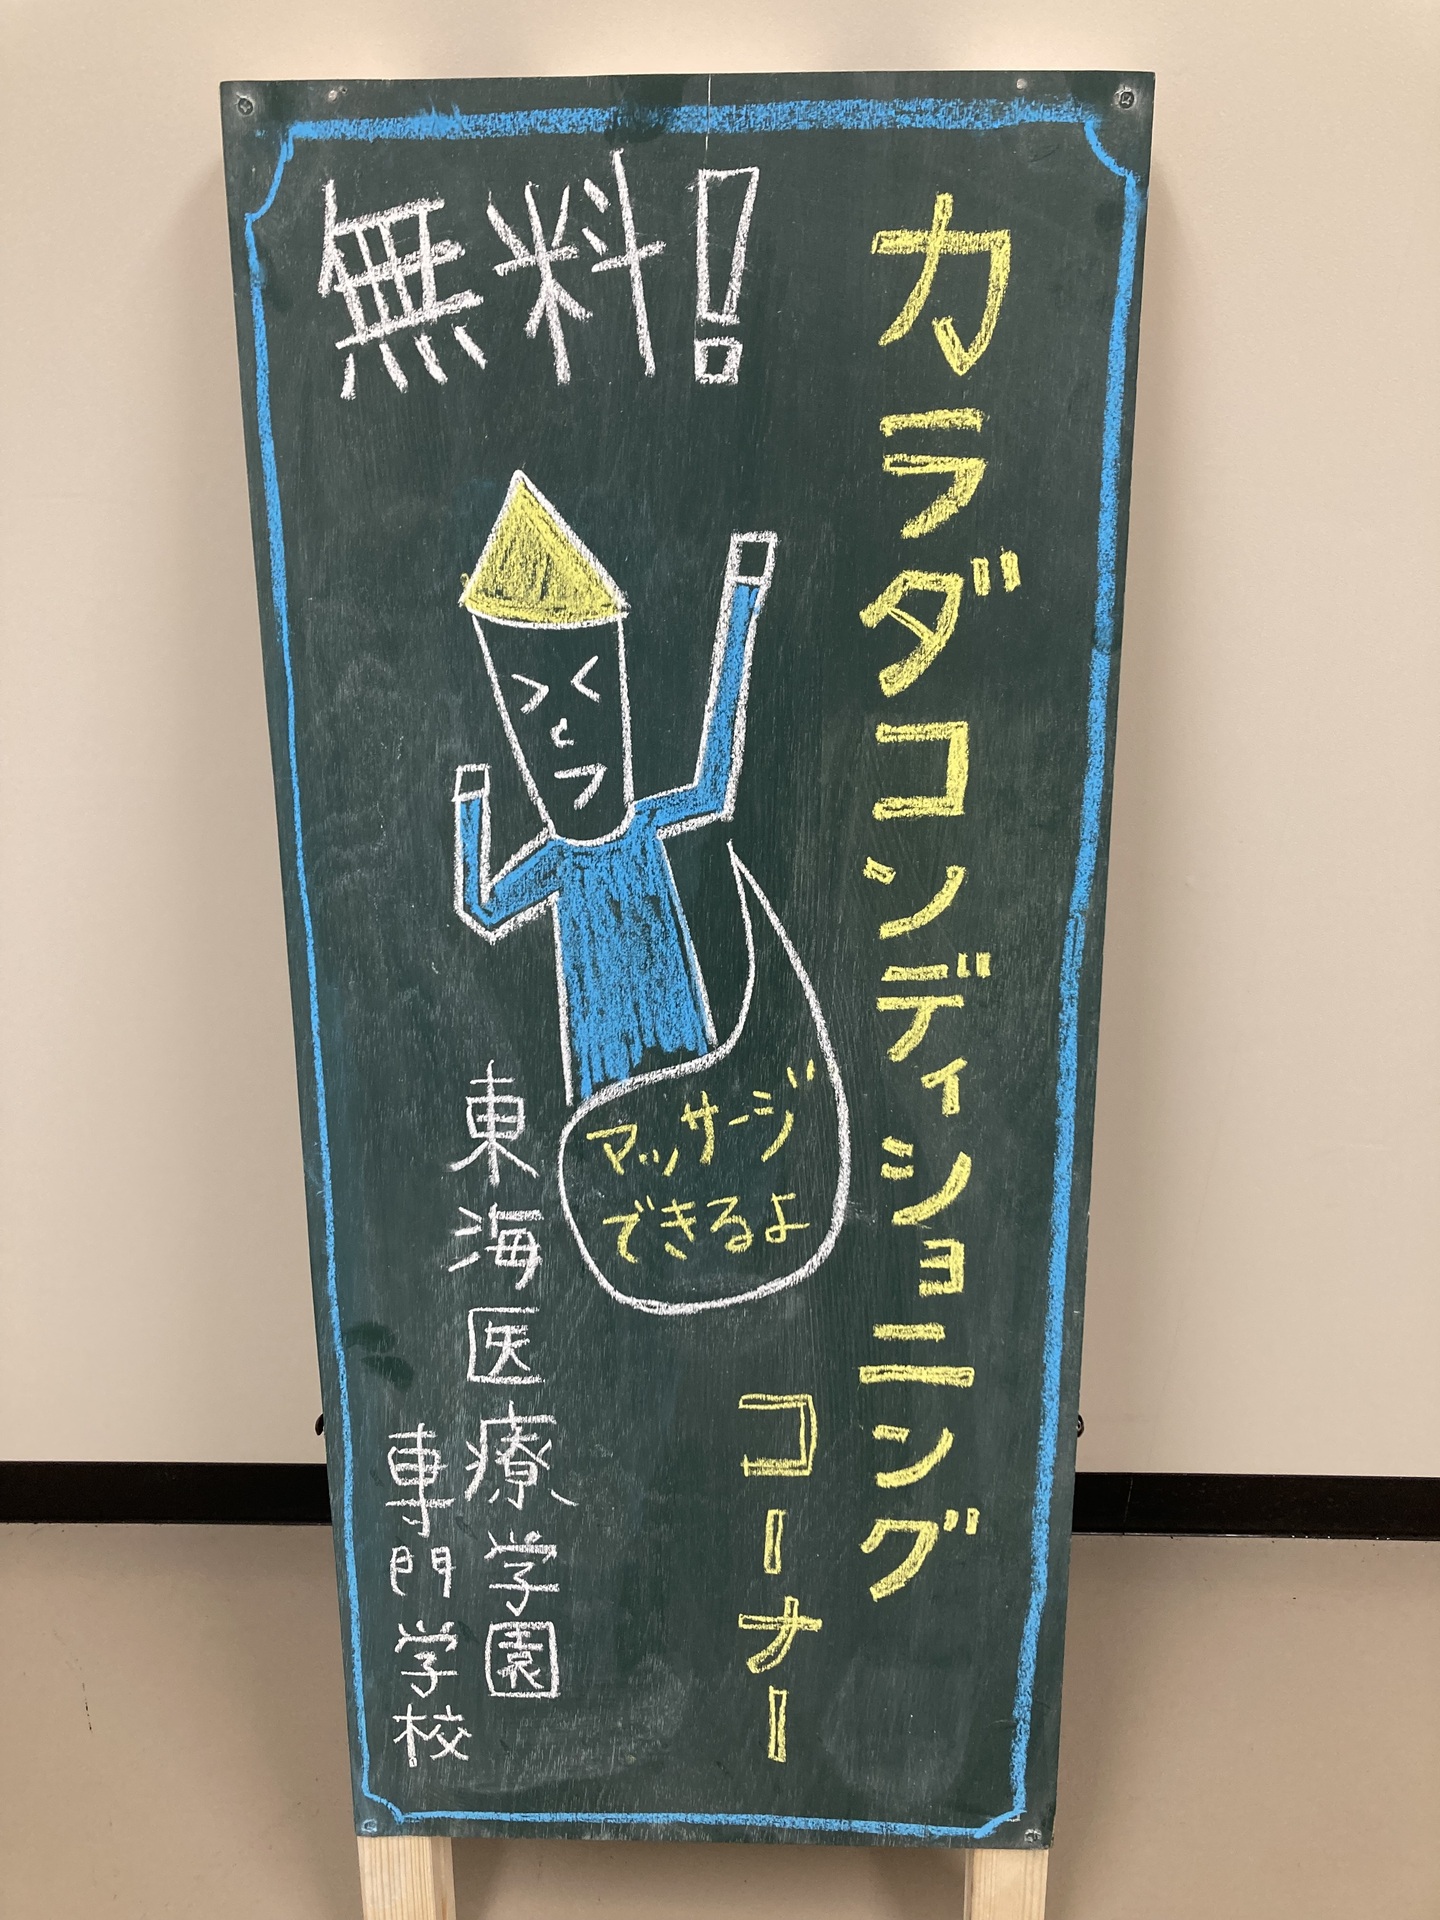 カラダコンディショニング
コーナー
無料!
マッサージ
できるよ
東海医療学園
専門学校